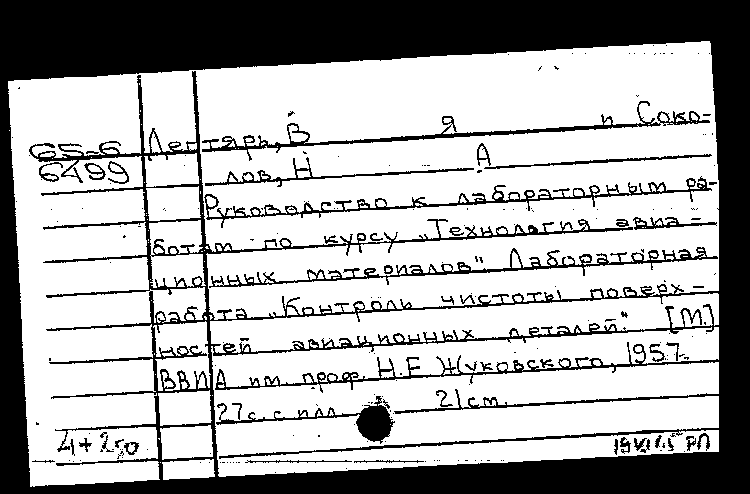 65-6 Дегтярь, В Я и Соко=
6499 лов, Н А
Руководство к лабораторным ра-
ботам по курсу „Технология авиа=
ционных материалов". Лабораторная
работа „Контроль чистоты поверх-
ностей авиационных деталей". [М.]
ВВИА им. проф. Н.Е Жуковского, 1957.
27с. с илл 21см.
4+2